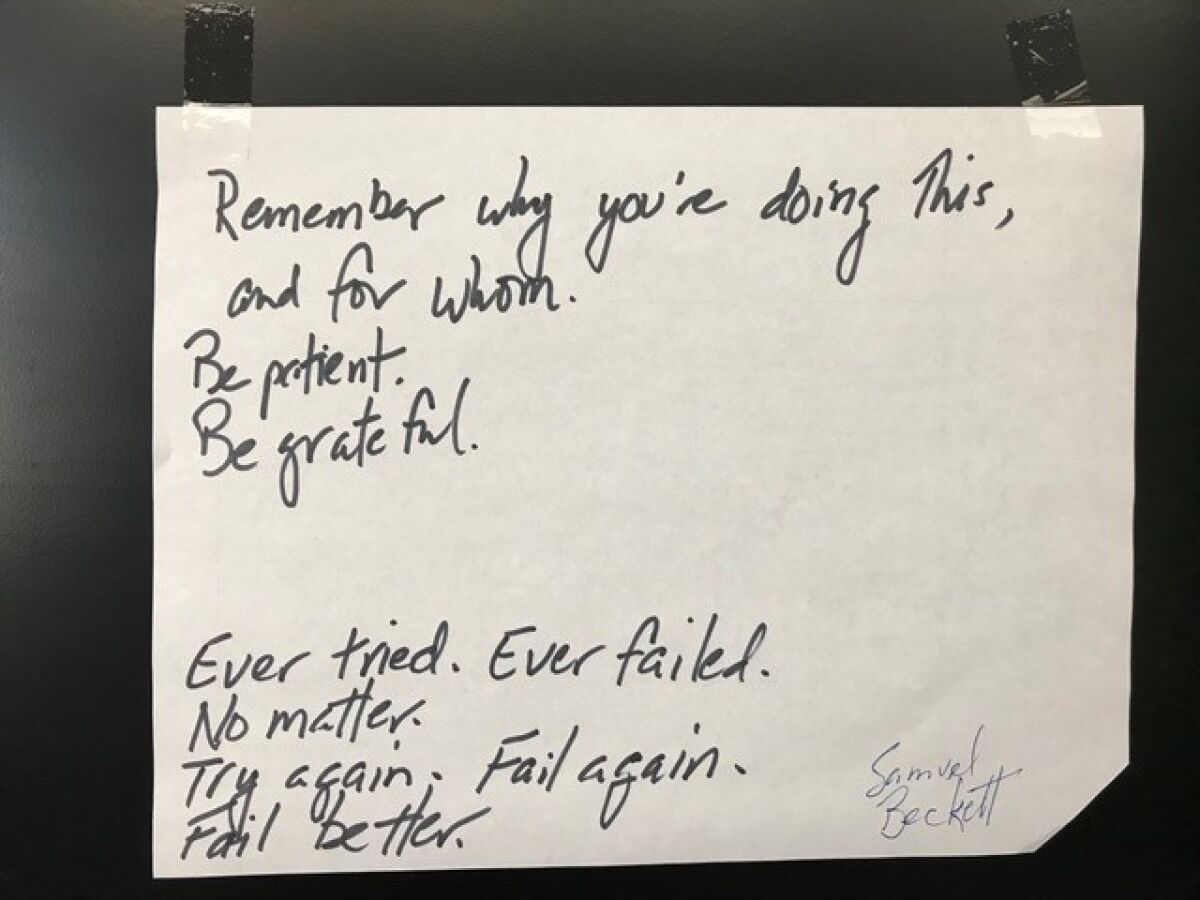 Remember why you're doing this,
and for whom.
Be patient.
Be grateful.
Ever tried. Ever failed.
No matter.
Try again. Fail again.
Fail better.
Samuel
Beckett